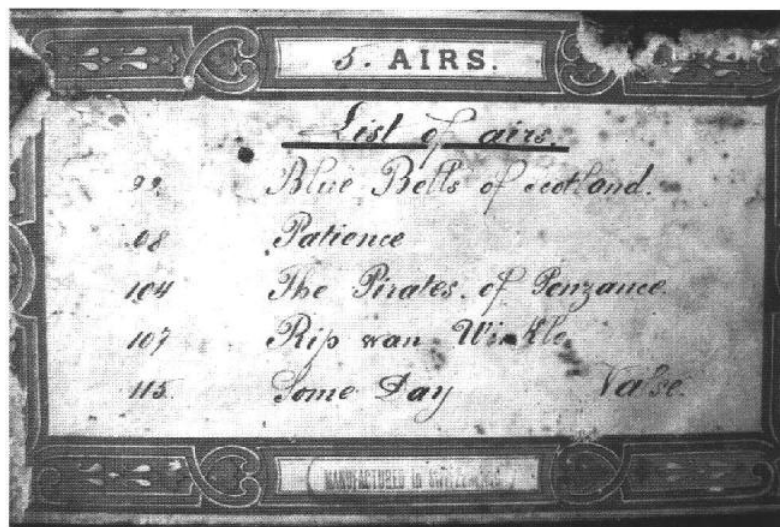 5. AIRS.
List of airs.
99. Blue Bells of Scotland.
98 Patience
104 The Pirates. of Penzance.
107 Rip wan Winkle.
115. Some Day Valse.
MANUFACTURED in SWITZERLAND